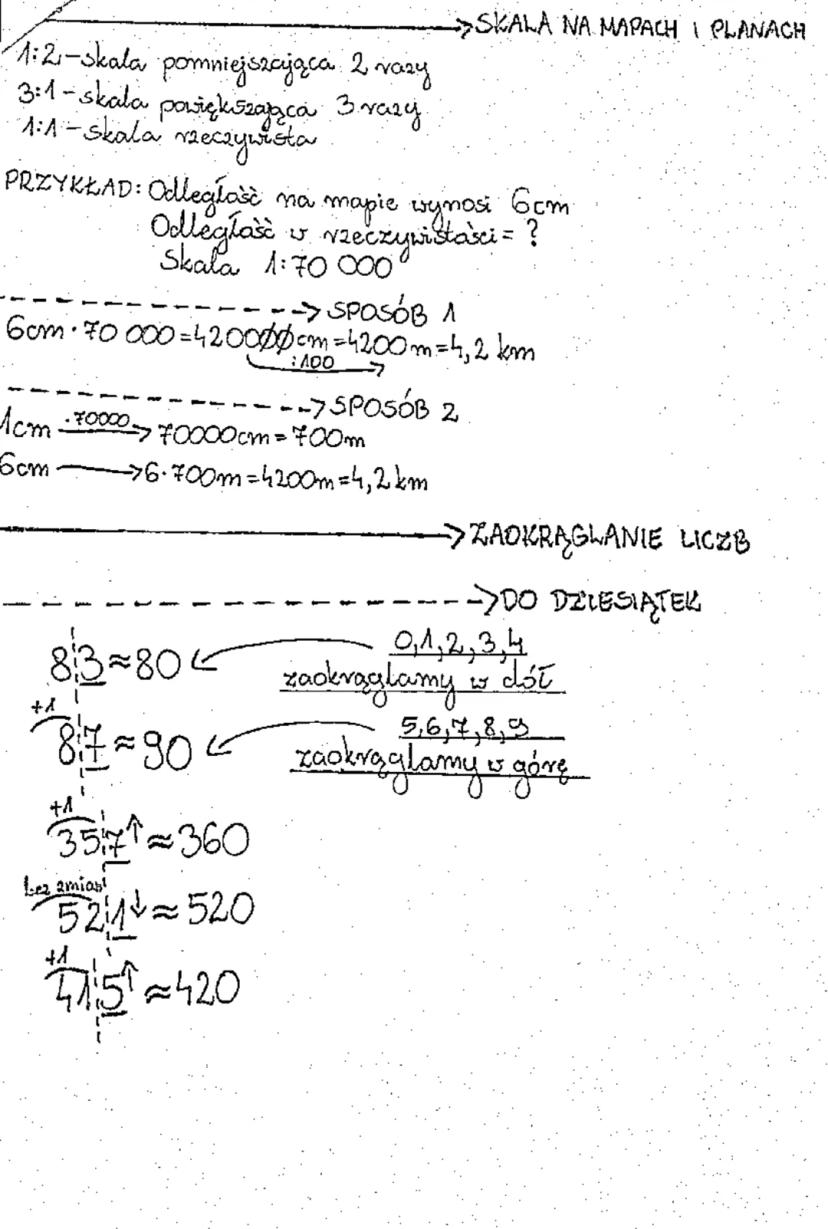 SKALA NA MAPACH I PLANACH
1:2 - skala pomniejszająca 2 razy
3:1 - skala powiększająca 3 razy
1:1 - skala rzeczywista
PRZYKŁAD: Odległość na mapie wynosi 6cm
Odległość w rzeczywistości = ?
Skala 1:70 000
SPOSÓB 1
6cm · 70 000 = 420000cm = 4200m = 4,2 km
:100
SPOSÓB 2
1cm ·70000 → 70000cm = 700m
6cm → 6·700m = 4200m = 4,2km
ZAOKRĄGLANIE LICZB
DO DZIESIĄTEK
83≈80 ← 0,1,2,3,4
zaokrąglamy w dół
+1
87≈90 ← 5,6,7,8,9
zaokrąglamy w górę
+1
357↑≈360
bez zmian
521↓≈520
+1
415↑≈420